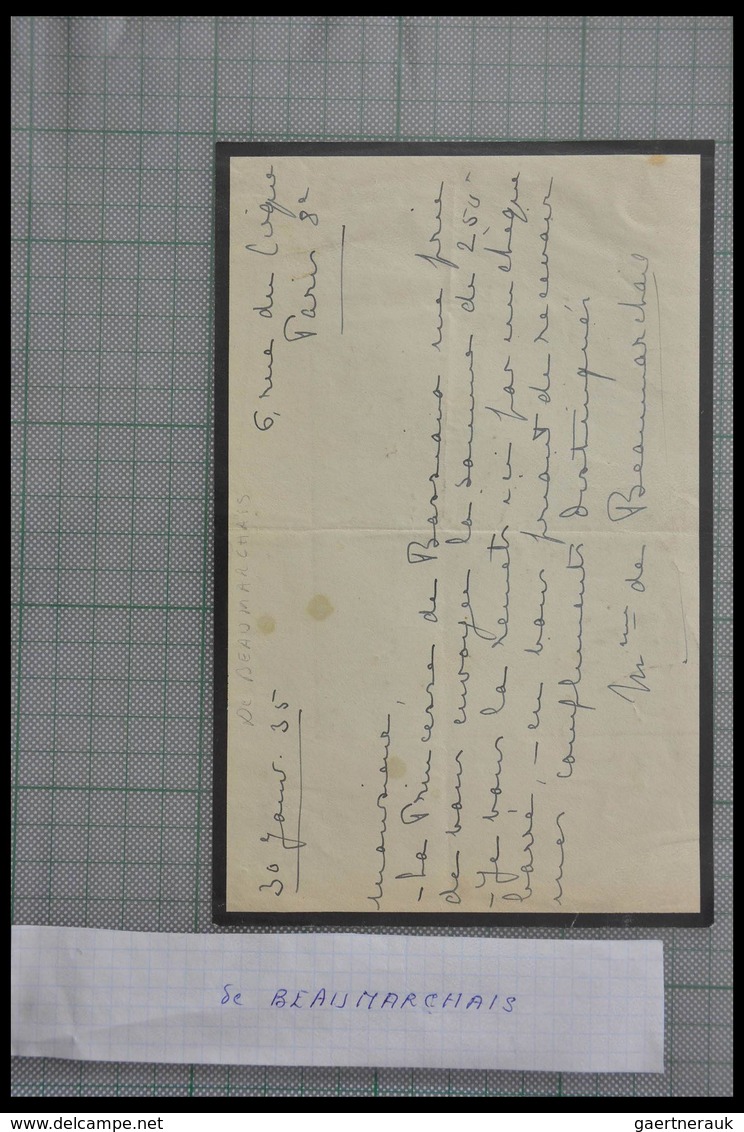 30 Janv. 35
De BEAUMARCHAIS
6, rue du Cirque
Paris 8e
Monsieur,
- La Princesse de Bassiano me prie
de vous envoyer la somme de 250 -
- Je vous la remets ici par un chèque
barré, - en vous priant de recevoir
mes compliments distingués
Mme de Beaumarchais
de BEAUMARCHAIS
gaertnerauk@delcampe.net